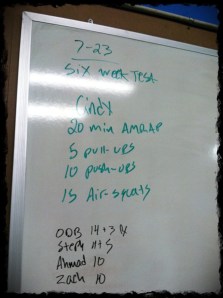 7-23
Six week Test
Cindy
20 min AMRAP
5 pull-ups
10 push-ups
15 Air-squats
ODB 14+3
Steph 11+5
Ahmad 10
Zach 10